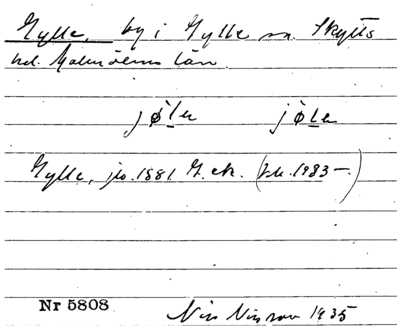 Gylle, by i Gylle sn. Skytts
hd. Malmöhus län.
jø̀lɐ jø̀lɐ
Gylle, jb. 1881 G. ek. (bk. 1933–)
Nr 5808
Nils Nilsson 1935